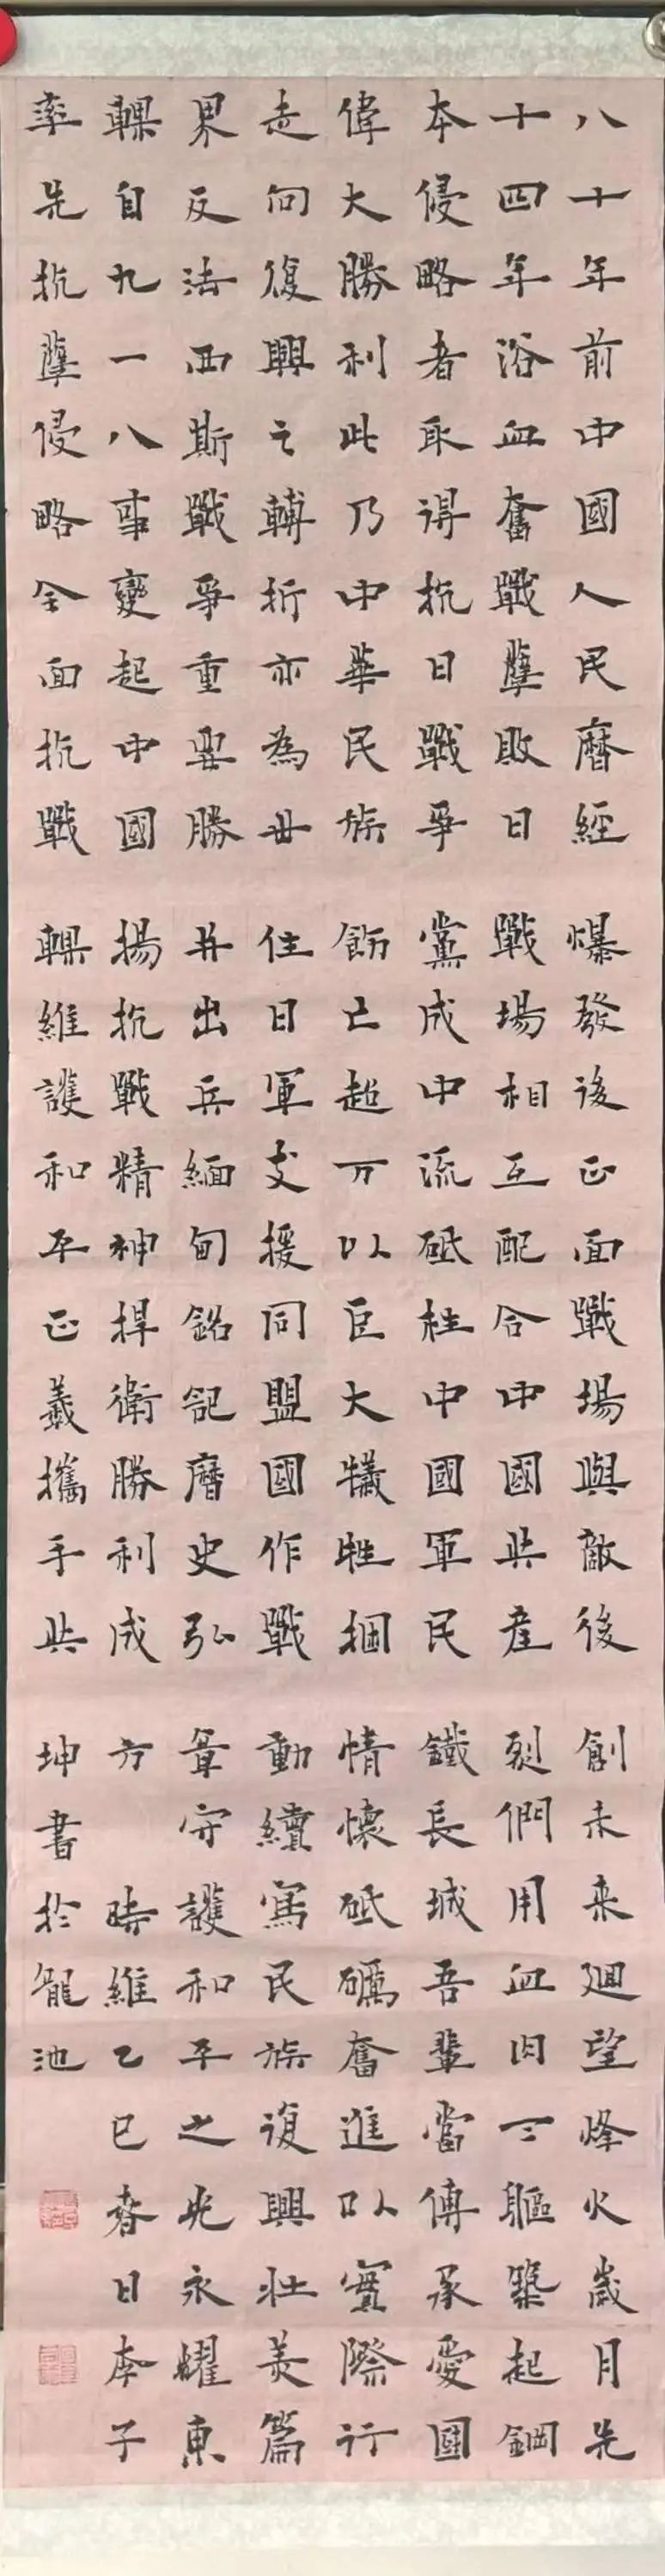 八十年前中國人民曆經
十四年浴血奮戰擊敗日
本侵略者取得抗日戰爭
偉大勝利此乃中華民族
走向復興之轉折亦為世
界反法西斯戰爭重要勝
輠自九一八事變起中國
率先抗擊侵略全面抗戰
爆發後正面戰場與敵後
戰場相互配合中國共產
黨成中流砥柱中國軍民
飭亡超万以巨大犧牲捆
住日軍支援同盟國作戰
并出兵緬甸銘記曆史弘
揚抗戰精神捍衛勝利成
輠維護和平正義攜手共
創未来廻望烽火歲月先
烈們用血肉之軀築起鋼
鐵長城吾輩當傳承愛國
情懷砥礪奮進以實際行
動續寫民族復興壯美篇
章守護和平之光永耀東
方 時維乙巳春日李子
坤書於龍池